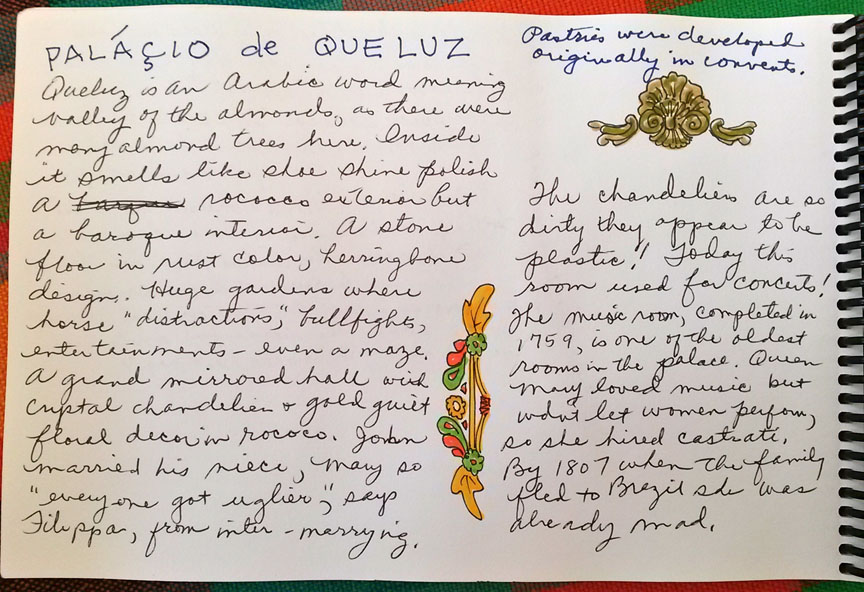 PALÁÇIO de QUELUZ
Queluz is an Arabic word meaning
valley of the almonds, as there were
many almond trees here. Inside
it smells like shoe shine polish
a rococo exterior but
a baroque interior. A stone
floor in rust color, herringbone
design. Huge gardens where
horse "distractions", bullfights,
entertainments - even a maze.
A grand mirrored hall with
crystal chandeliers + gold
floral decor in rococo. John
married his niece, Mary so
"everyone got uglier", says
Filippa, from inter-marrying.
Pastries were developed
originally in convents.
The chandeliers are so
dirty they appear to be
plastic! Today this
room used for concerts!
The music room, completed in
1759, is one of the oldest
rooms in the palace. Queen
Mary loved music but
wdn't let women perform,
so she hired castrati.
By 1807 when the family
fled to Brazil she was
already mad.